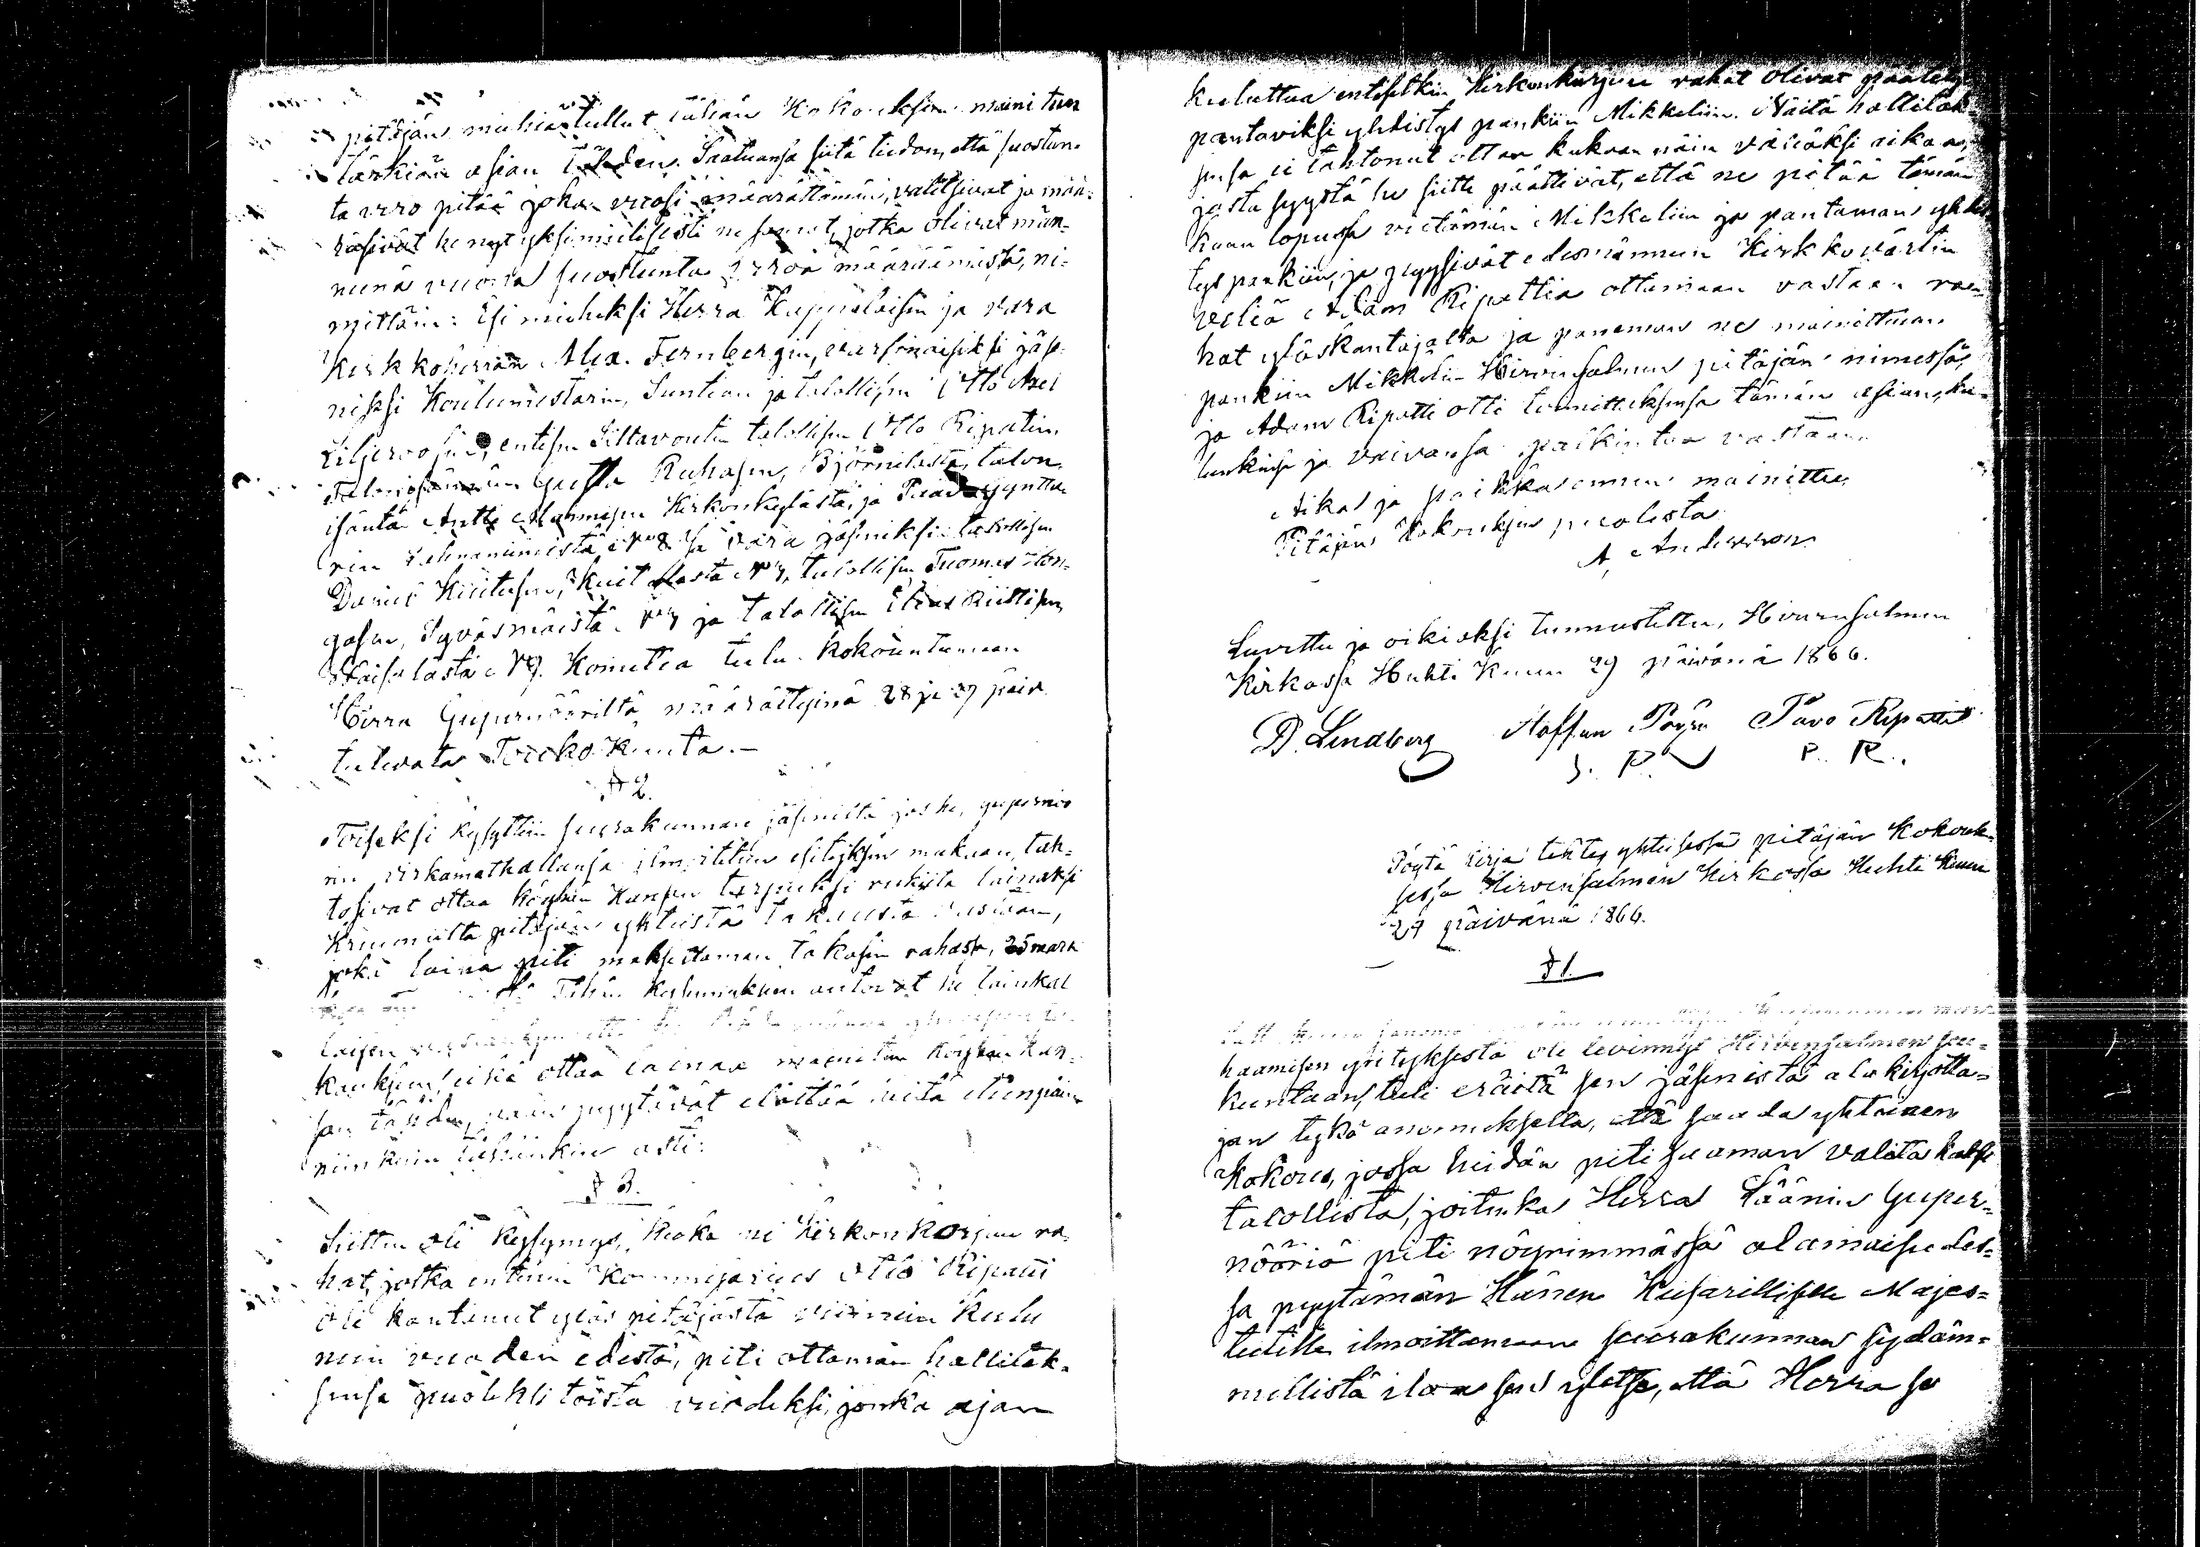 pitäjän miehiä tullut tähän Kokouksen mainitun
tärkiän asian tähden. Saatuansa siitä tiedon, että suostun-
ta vero pitää joka vuosi määrättämän, valitsivat ja mää-
räsivät he nyt yksimielisesti ne samat, jotka olivat män-
neenä vuonna suostunta veroa määräämistä, ni-
mittäin: Esi mieheksi Herra Kappalaisen ja vara
Kirkkoherran Alex. Fernbergin, varsinaisiksi jäse-
niksi Koulumestarin, Suntion ja talollisen Otto Axel
Liljeroosin, entisen Siltavoutin talollisen Otto Ripatin,
Talonisännän Gusta Ruhasen, Björnilästä, talon-
isäntä Antti Manninen Kirkonkylästä, ja
N:o 8 ja vara jäseniksi talollisen
Darius Kiiskisen, N:o 7, talollisen Tuomas Hon-
gasen, Syväsmäistä N:o 7 ja talollisen Elias Kiiskisen
N:o 9. Komitea tulee kokountumaan
Herra Gupernööriltä määrättyinä 28 ja 29 päiv.
tulevata Toukokuuta.—
§ 2.
Toiseksi kysyttiin seurakunnan jäseniltä jos he, guperniö
rin virkamathallansa ilmoitetun esityksen mukaan, tah-
tosivat ottaa köyhän Kansan tarpeeksi rukiita lainaksi
Kruunulta pitäjän yhteistä takuusta vastaan,
joka laina piti maksettaman takasin rahassa, 25 mark
Tähän kysymykseen antoivat he
laisen
kauksen, eikä ottaa lainaa mainitun köyhän Kan-
san tähden, vaan pyytävät elättää heitä eteenpäin
niinkuin tähänkin asti.
§ 3.
Sitten oli kysymys, kuka ne Kirkonkorjuu ra-
hat, jotka entinen Kommisarius Otto Ripatti
oli kantanut ylös pitäjästä viimein kulu
neen vuoden edestä, piti ottaman hallituk-
sensa puoleksi toista vuodeksi, jonka ajan
kuluttua entisetkin Kirkonkorjuu rahat olivat päätety
pantaviksi yhdistys pankiin Mikkeliin. Näitä hallituk-
sensa ei tahtonut ottaa kukaan näin väliäksi aikaa,
josta syystä he sitte päättivät, että ne pitää tämän
kuun lopussa vietämän Mikkeliin ja pantaman yhdis-
tys pankiin, ja pyysivät edesmännen Kirkkovärtin
veliä Adam Ripattia ottamaan vastaan ra-
hat ylöskantajalta ja paneman ne mainittuun
pankiin Mikkeliin Hirvensalmen pitäjän nimessä,
ja Adam Ripatti otti toimittaksensa tämän asian,
ja vaivansa palkintoa vastaan.
Aikas ja paikkas ennen mainittu
Pitäjän Kokouksen puolesta
A. Andersson
Luvettu ja oikiaksi tunnustettu, Hirvensalmen
Kirkossa Huhti Kuun 29 päivänä 1866.
D. Lindberg Staffan Pöyry Pavo Ripatti
S. P. P. R.
Pöytä kirja tehty yhteisessä pitäjän Kokouk-
sessa Hirvensalmen Kirkossa Huhti Kuun
29 päivänä 1866.
§ 1.
haamisen yrityksestä oli levinnyt Hirvensalmen seu-
kuntaan, tuli eräistä sen jäsenistä alakirjotta-
jan tykö anomuksella, että saada yhteinen
Kokous, jossa heidän piti saaman valita kaksi
talollista, joitenka Herra Läänin Guper-
nööriä piti nöyrimmässä alamaisuudes-
sa pyytämän Hänen Keisarillisele Majes-
teetille ilmoittamaan seurakunnan sydäm-
mellistä iloa sen ylitse, että Herra se